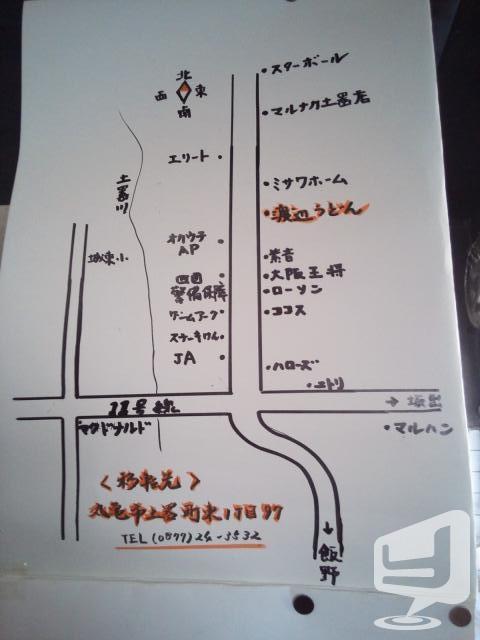 北
西 東
南
スターボール
マルナカ土器店
土器川
エリート
ミサワホーム
渡辺うどん
オカウチ
AP
城東小
紫音
四国
警備保障
大阪王将
ローソン
ゲームアーク
ココス
ステーキけん
JA
ハローズ
ニトリ
11号線
→ 坂出
マクドナルド
マルハン
<移転先>
丸亀市土器町東1丁目97
TEL(0877)24-3532
↓
飯野